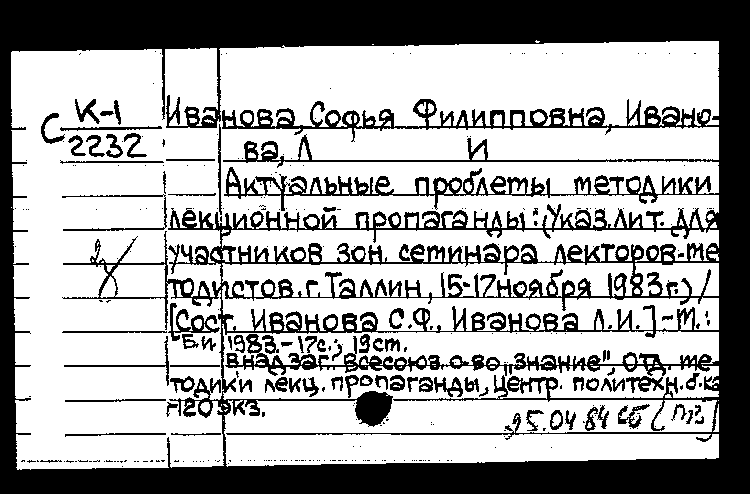 К-1
С 2232
Иванова, Софья Филипповна, Ивано-
ва, Л И
Актуальные проблемы методики
лекционной пропаганды: (Указ. лит. для
участников зон. семинара лекторов-ме
тодистов. г. Таллин, 15-17 ноября 1983 г.) /
[Сост. Иванова С.Ф., Иванова Л.И.] - М.:
Б.и., 1983. - 17с.; 19 ст.
В надзаг.: Всесоюз. о-во „Знание", Отд. ме-
тодики лекц. пропаганды, Центр. политехн. б-ка
-120 экз.
25.04 84 сб [ПЗ]